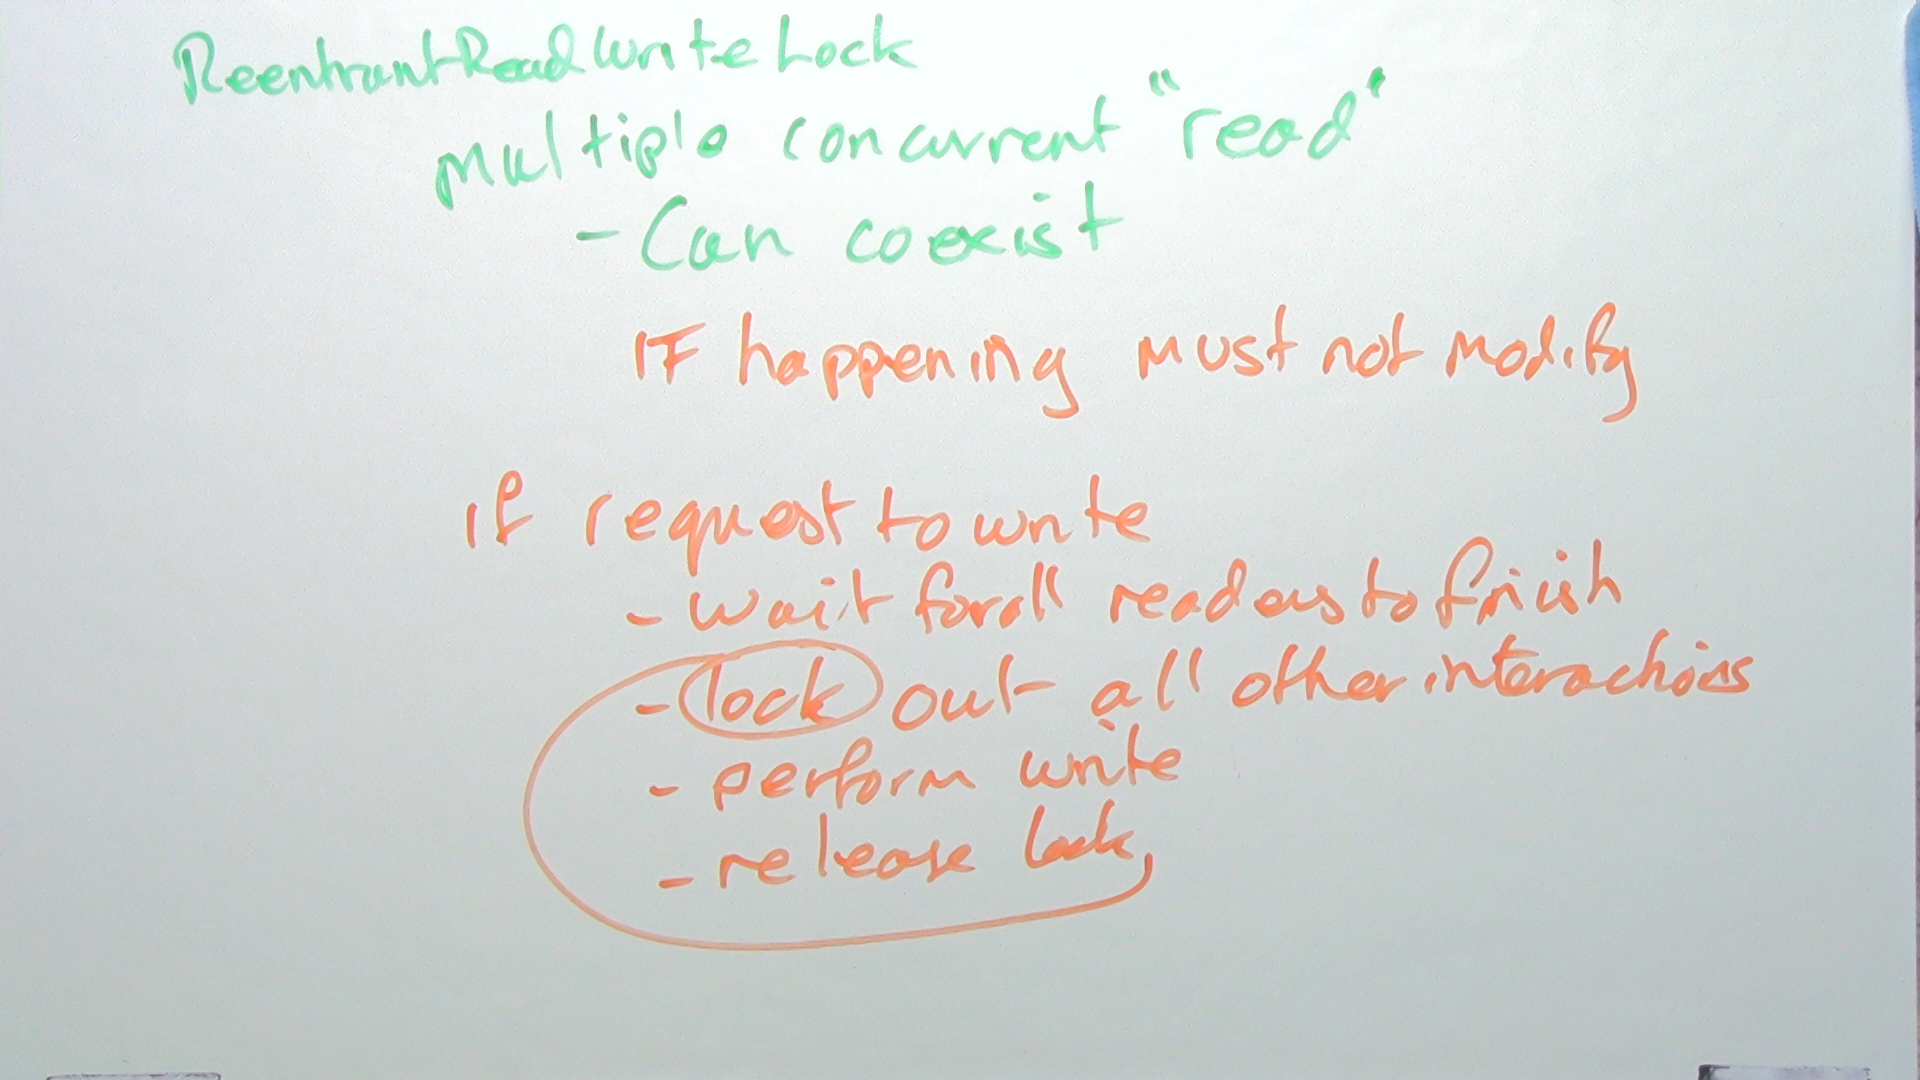 ReentrantReadWriteLock
multiple concurrent "read"
- Can coexist
IF happening must not modify
if request to write
- wait for all readers to finish
- lock out all other interactions
- perform write
- release lock